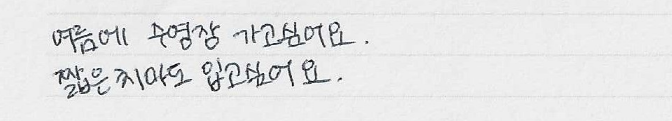 여름에 수영장 가고싶어요.
짧은 치마도 입고싶어요.